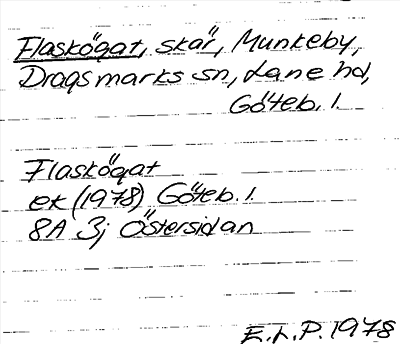 Flaskögat, skär, Munkeby,
Dragsmarks sn, Lane hd,
Göteb. l.
Flaskögat
ek (1978) Göteb. l.
8A 3j Östersidan
E.L.P. 1978